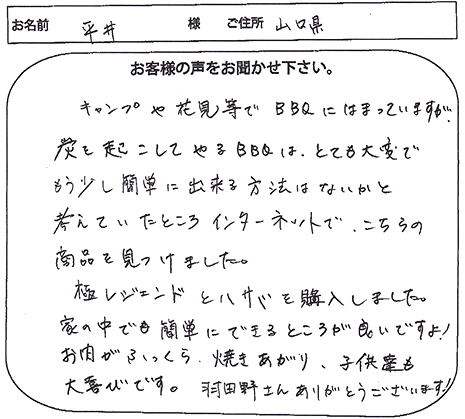 お名前 平井 様 ご住所 山口県
お客様の声をお聞かせ下さい。
キャンプや花見等でBBQにはまっていますが、
炭を起こしてやるBBQは、とても大変で
もう少し簡単に出来る方法はないかと
考えていたところインターネットで、こちらの
商品を見つけました。
極レジェンドとハサミを購入しました。
家の中でも簡単にできるところが良いですよ!
お肉がふっくら、焼きあがり、子供達も
大喜びです。羽田野さんありがとうございます!!